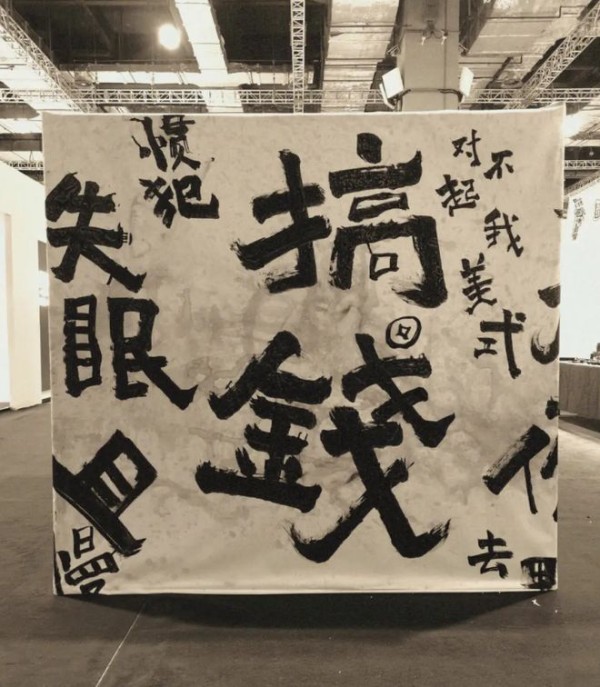 惯犯
失眠
搞錢
对不起
我美式
去
漫